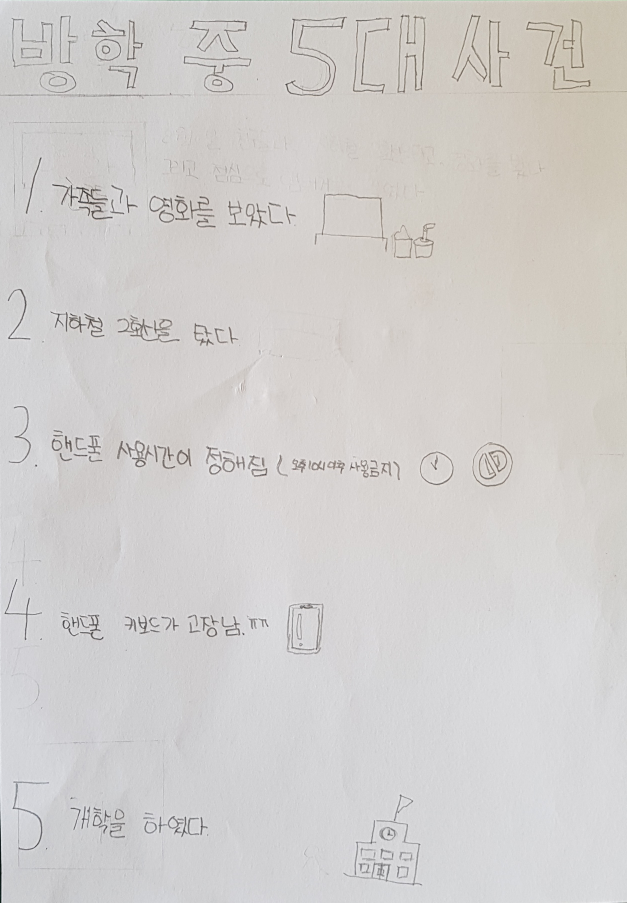 방학 중 5대사건
1. 가족들과 영화를 보았다.
2. 지하철 2호선을 탔다
3. 핸드폰 사용시간이 정해짐 (오후10시 이후 사용금지)
4. 핸드폰 키보드가 고장남.ㅠㅠ
5. 개학을 하였다.